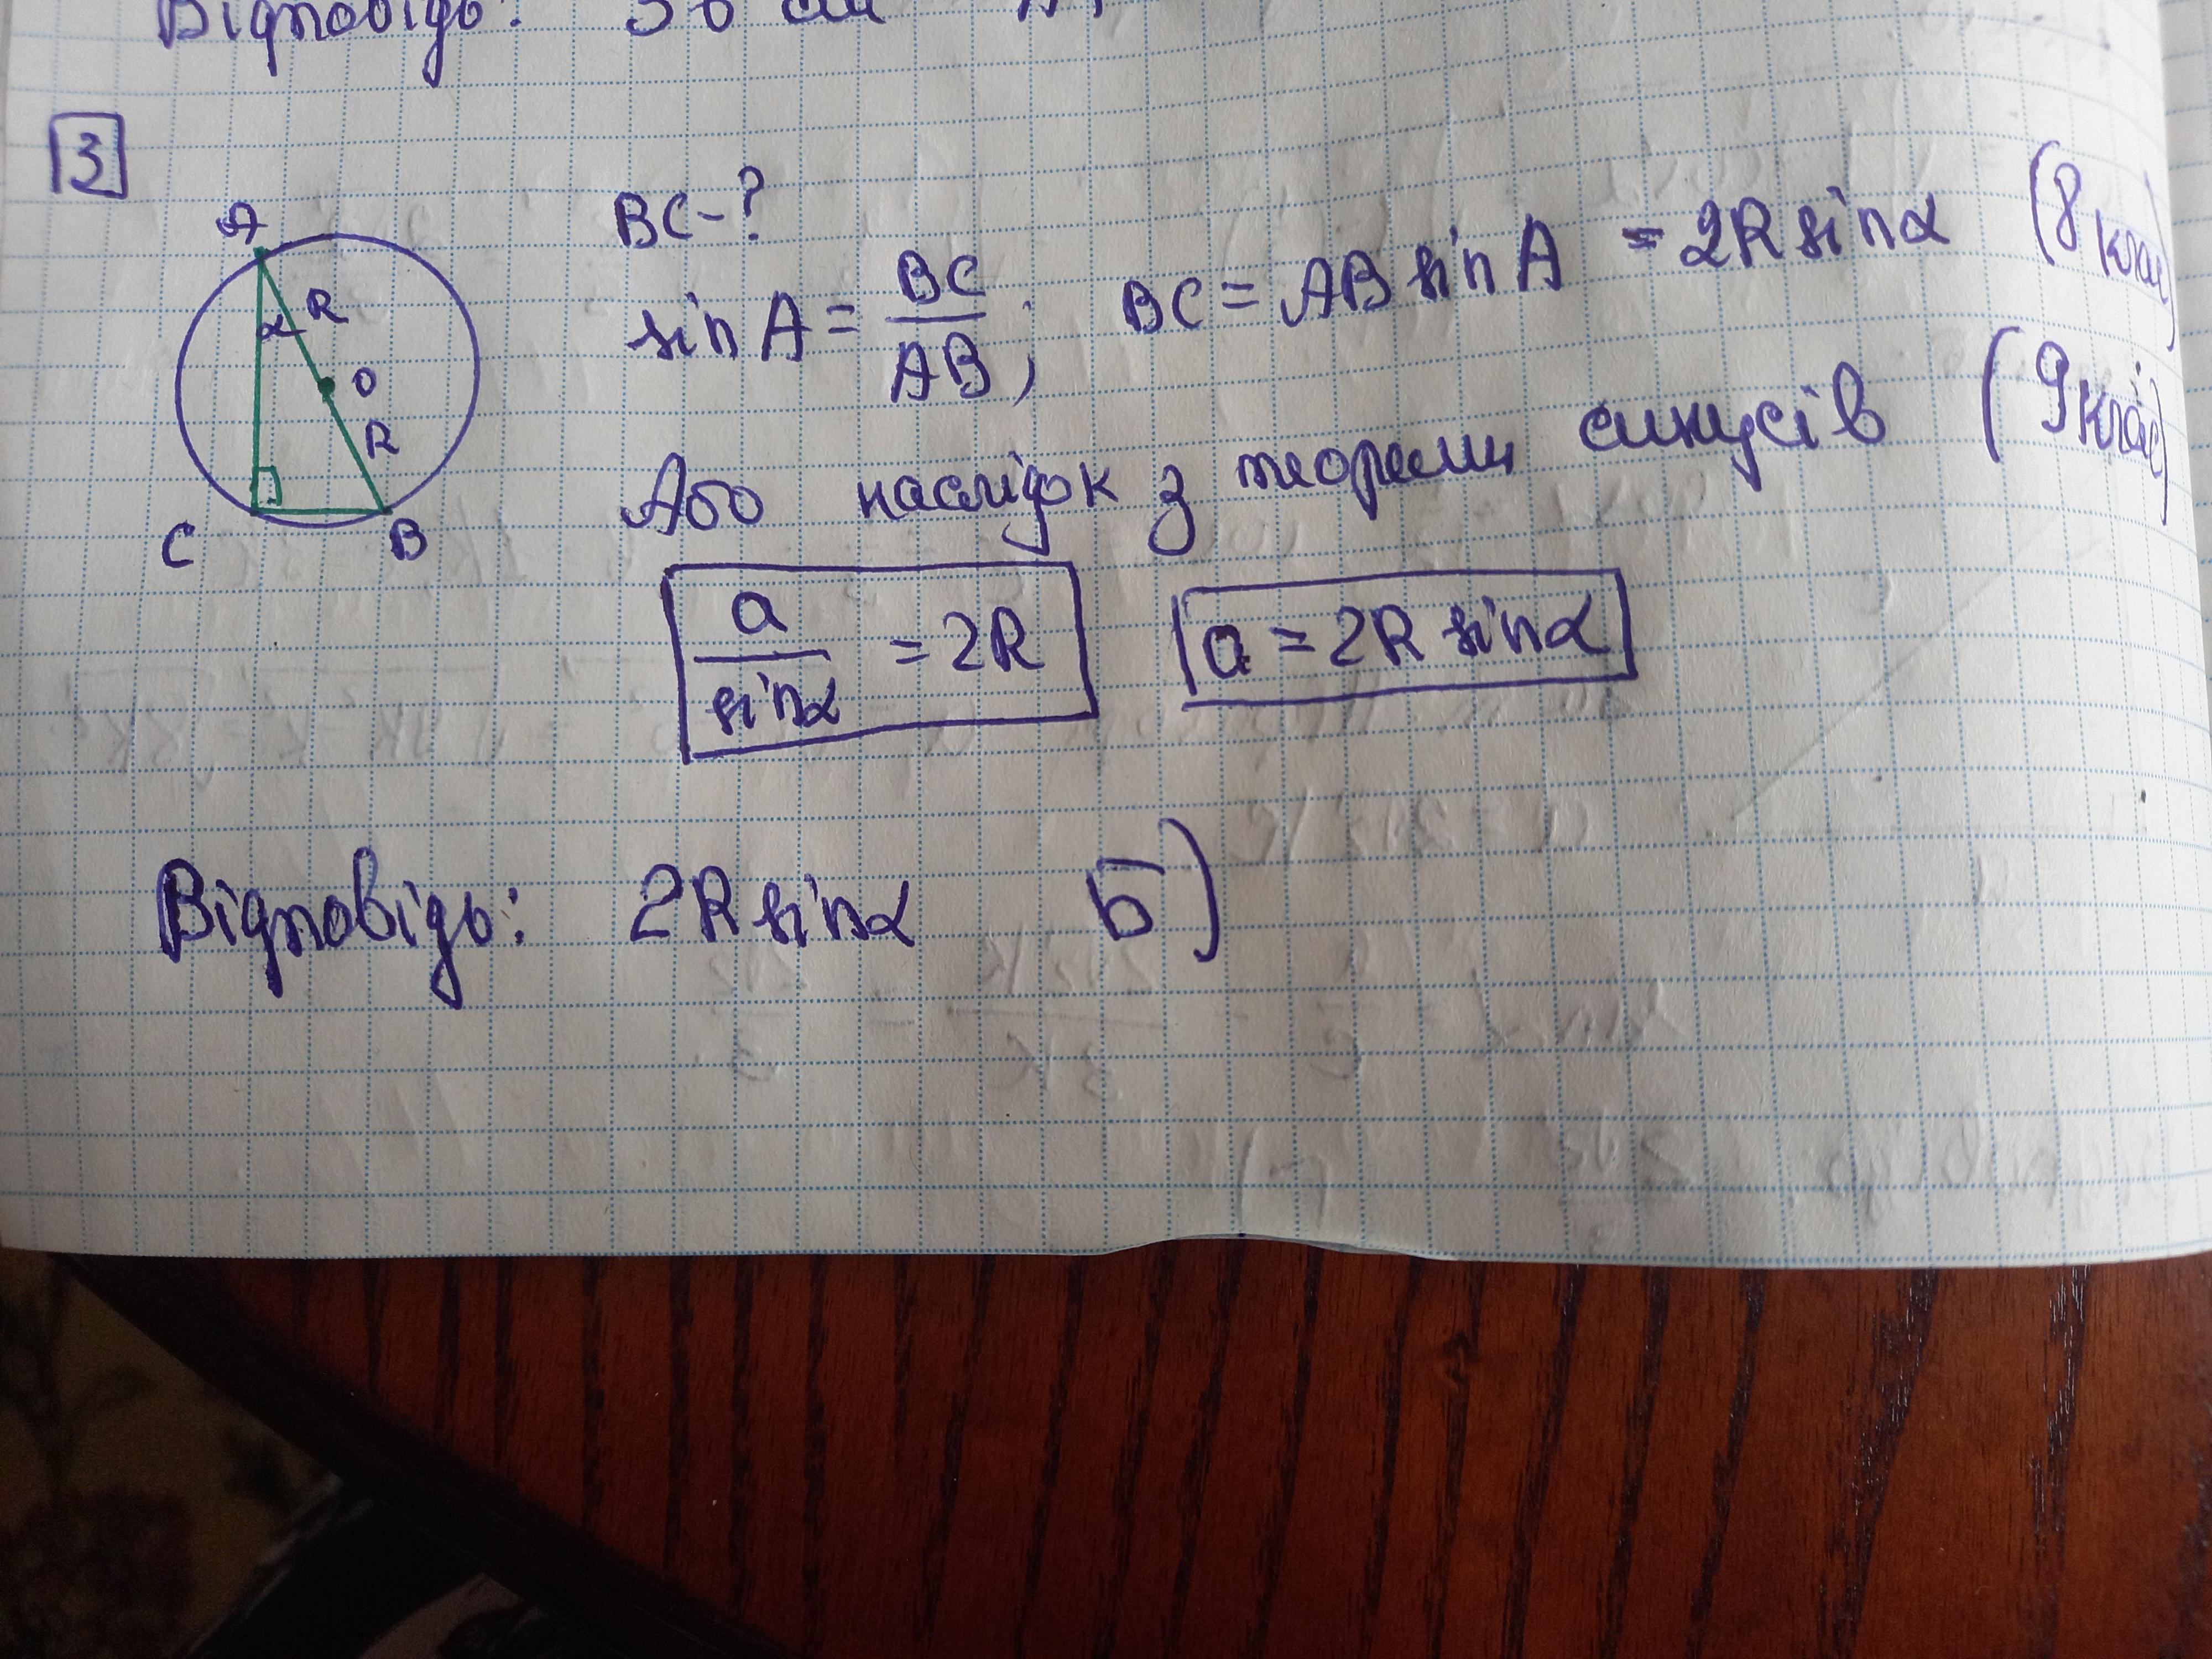 Відповідь: 36 см
3
A
R
α
O
R
C
B
BC-?
sin A = BC/AB; BC = AB sin A = 2R sin α (8 клас)
Або наслідок з теореми синусів (9 клас)
a/sin α = 2R a = 2R sin α
Відповідь: 2R sin α Б)